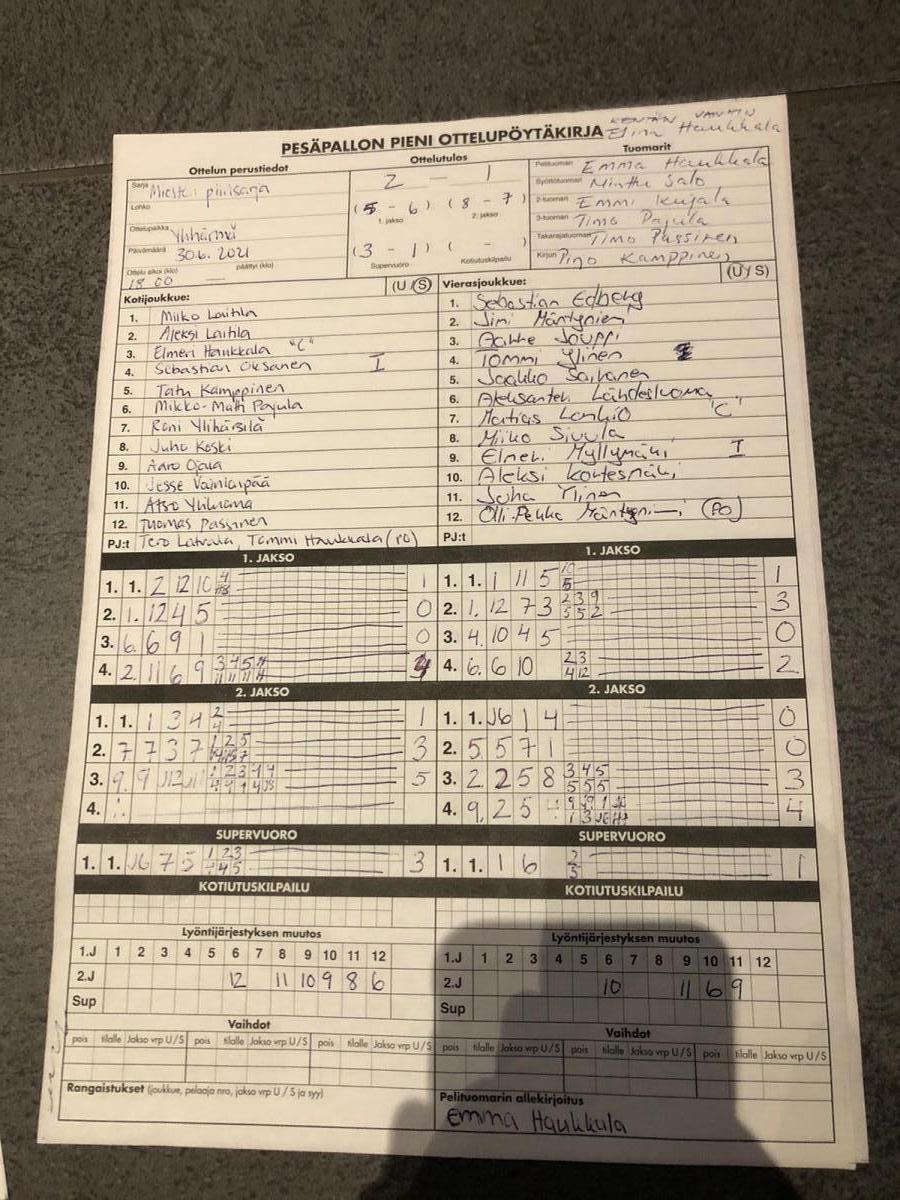 KENTÄN VANHIN
PESÄPALLON PIENI OTTELUPÖYTÄKIRJA Elina Haukkala
Ottelun perustiedot
Sarja Miesten piirisarja
Lohko
Ottelupaikka Ylihärmä
Päivämäärä 30.6. 2021
Ottelu alkoi (klo) päättyi (klo)
18.00 —
Ottelutulos
2 — 1
(5 - 6) (8 - 7)
1. jakso 2. jakso
(3 - 1) ( - )
Supervuoro Kotiutuskilpailu
Tuomarit
Pelituomari Emma Haukkala
Syöttötuomari Minttu Salo
2-tuomari Emmi Kujala
3-tuomari Timo Pajula
Takarajatuomari Timo Passinen
Kirjuri Pino Kamppinen
Kotijoukkue: (U/S)
1. Miiko Laitila
2. Aleksi Laitila
3. Elmeri Haukkala "C"
4. Sebastian Oksanen I
5. Tatu Kamppinen
6. Mikko-Matti Pajula
7. Roni Ylihärsilä
8. Juho Koski
9. Aaro Ojala
10. Jesse Vainionpää
11. Atso
12. Tuomas Passinen
PJ:t Tero Latvala, Tommi Haukkala (PO)
Vierasjoukkue: (U/S)
1. Sebastian Edberg
2. Jimi Mäntyniemi
3. Jouppi
4. Tommi Ylinen
5. Jaakko
6. Aleksanteri Lähdesluoma
7. Matias "C"
8. Miiko Sivula
9. Elmeri Myllymäki I
10. Aleksi Kortesmäki
11. Juha
12. Olli-Pekka (PO)
PJ:t
1. JAKSO
1. 1. 2 12 10 1
2. 1. 12 4 5 0
3. 6. 6 9 1 0
4. 2. 11 6 9 4
2. JAKSO
1. 1. 1 3 4 2 4 1
2. 7 7 3 7 3
3. 9. 9 5
4.
SUPERVUORO
1. 1. J6 7 5 3
KOTIUTUSKILPAILU
Lyöntijärjestyksen muutos
1.J 1 2 3 4 5 6 7 8 9 10 11 12
2.J 12 11 10 9 8 6
Sup
Vaihdot
pois tilalle Jakso vrp U/S pois tilalle Jakso vrp U/S pois tilalle Jakso vrp U/S
Rangaistukset (joukkue, pelaaja nro, jakso vrp U / S ja syy)
1. JAKSO
1. 1. 1 11 5 10 5 1
2. 1. 12 7 3 2 3 9 5 5 2 3
3. 4. 10 4 5 0
4. 6. 6 10 2 3 4 12 2
2. JAKSO
1. 1. J6 1 4 0
2. 5 5 7 1 0
3. 2 2 5 8 3 4 5 5 5 5 3
4. 9. 2 5 4
SUPERVUORO
1. 1. 1 6 1
KOTIUTUSKILPAILU
Lyöntijärjestyksen muutos
1.J 1 2 3 4 5 6 7 8 9 10 11 12
2.J 10 11 6 9
Sup
Vaihdot
pois tilalle Jakso vrp U/S pois tilalle Jakso vrp U/S pois tilalle Jakso vrp U/S
Pelituomarin allekirjoitus
Emma Haukkala